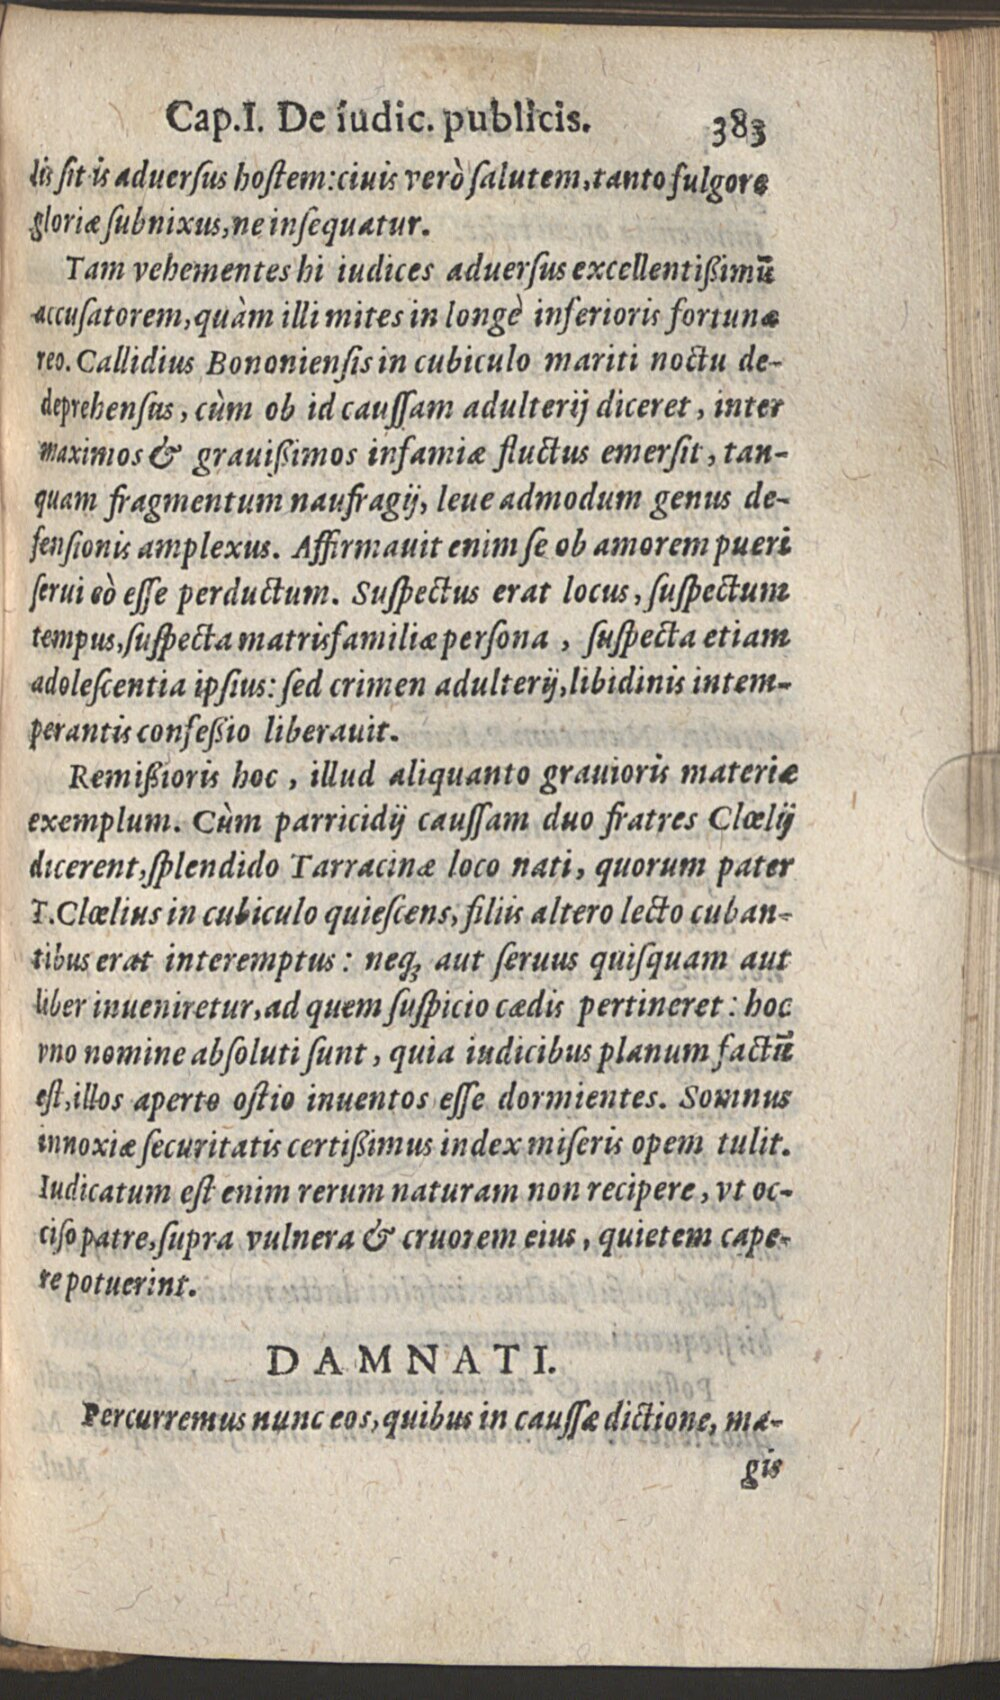 Cap.I. De iudic. publicis. 383
lis sit is aduersus hostem:ciuis verò salutem,tanto fulgore
gloriæ subnixus,ne insequatur.
Tam vehementes hi iudices aduersus excellentißimũ
accusatorem,quàm illi mites in longè inferioris fortunæ
reo. Callidius Bononiensis in cubiculo mariti noctu de-
deprehensus, cùm ob id caussam adulterij diceret, inter
maximos & grauißimos infamiæ fluctus emersit, tan-
quam fragmentum naufragij, leue admodum genus de-
fensionis amplexus. Affirmauit enim se ob amorem pueri
serui eò esse perductum. Suspectus erat locus, suspectum
tempus,suspecta matrisfamiliæ persona , suspecta etiam
adolescentia ipsius: sed crimen adulterij,libidinis intem-
perantis confeßio liberauit.
Remißioris hoc , illud aliquanto grauioris materiæ
exemplum. Cùm parricidij caussam duo fratres Clœlij
dicerent,splendido Tarracinæ loco nati, quorum pater
T.Clœlius in cubiculo quiescens, filiis altero lecto cuban-
tibus erat interemptus: neq; aut seruus quisquam aut
liber inueniretur,ad quem suspicio cædis pertineret: hoc
vno nomine absoluti sunt, quia iudicibus planum factũ
est,illos aperto ostio inuentos esse dormientes. Somnus
innoxiæ securitatis certißimus index miseris opem tulit.
Iudicatum est enim rerum naturam non recipere, vt oc-
ciso patre,supra vulnera & cruorem eius, quietem cape-
re potuerint.
DAMNATI.
Percurremus nunc eos,quibus in caussæ dictione, ma-
gis